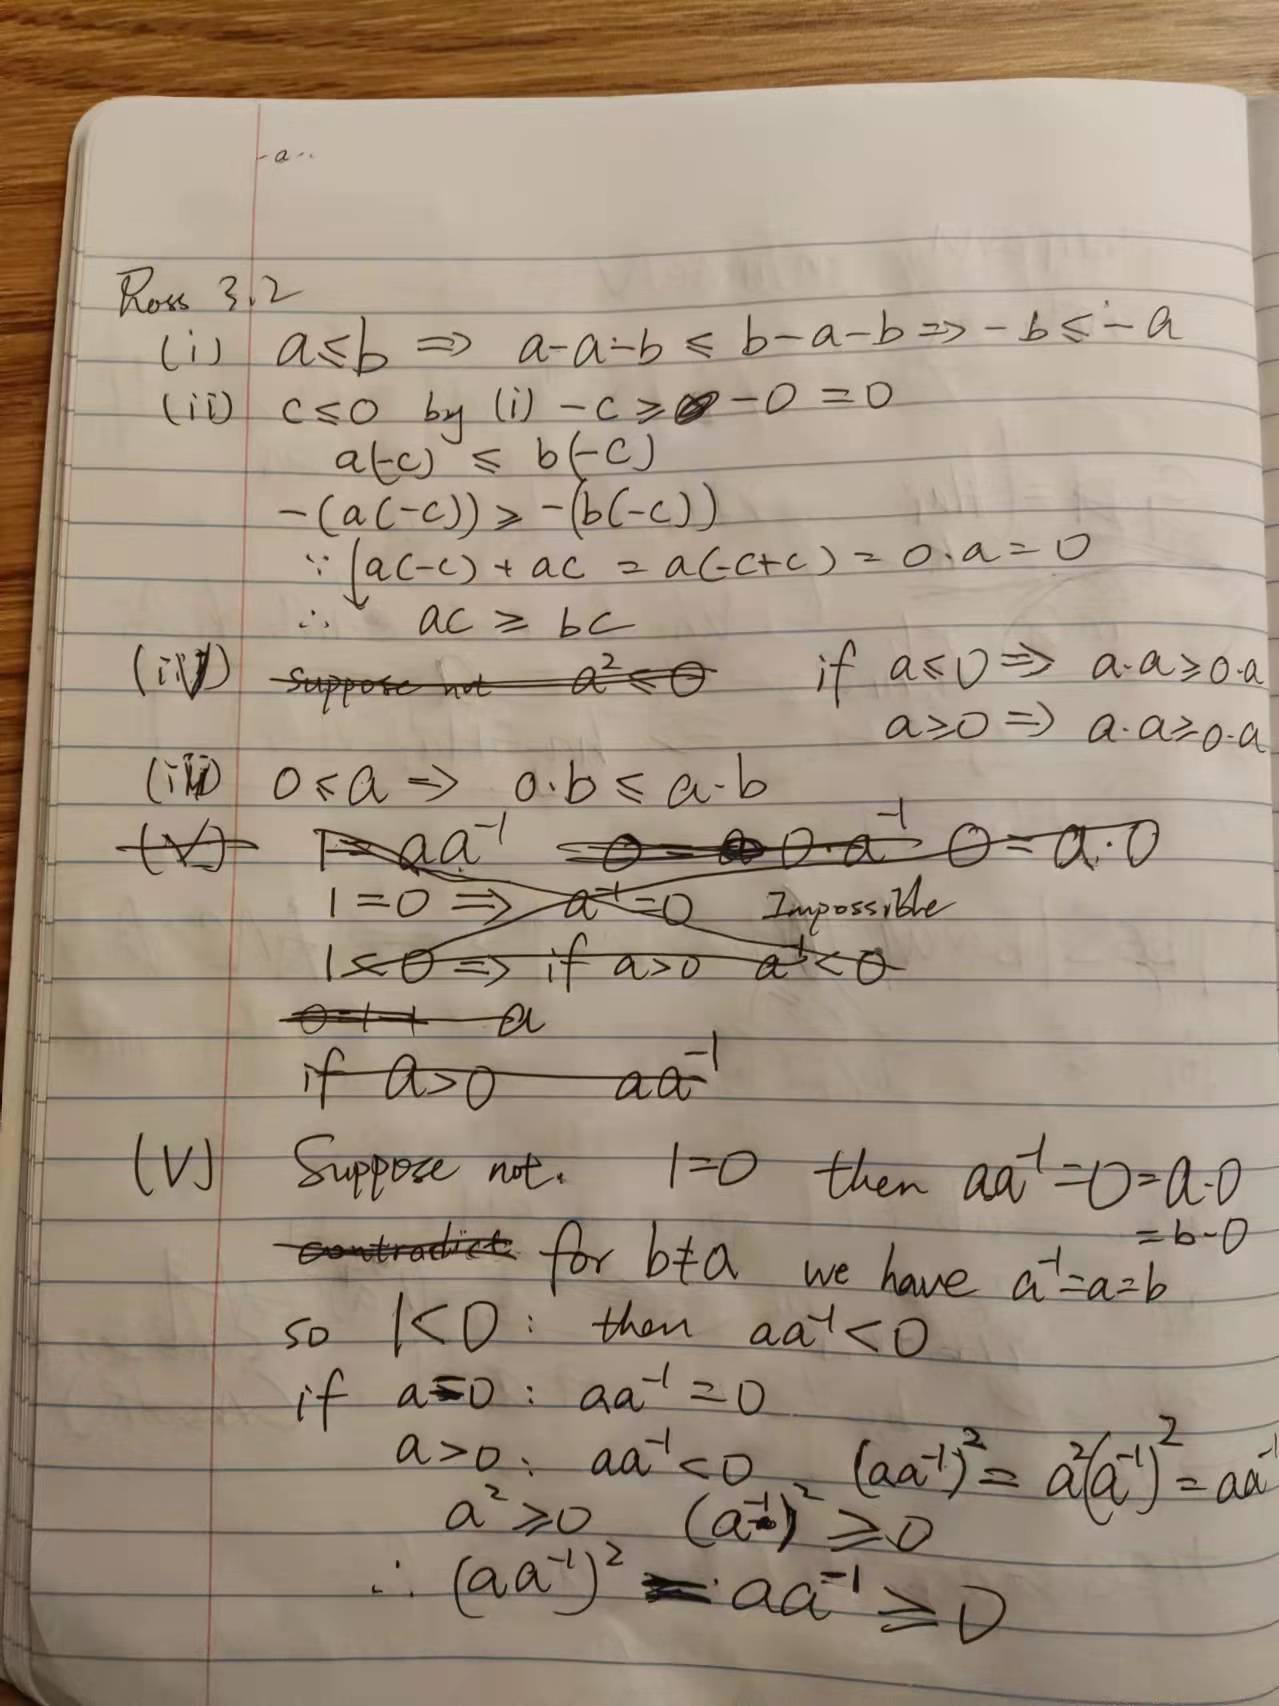 -a..
Ross 3.2
(i) a≤b ⇒ a-a-b ≤ b-a-b ⇒ -b ≤ -a
(ii) c≤0 by (i) -c ≥ -0 = 0
a(-c) ≤ b(-c)
-(a(-c)) ≥ -(b(-c))
∵ a(-c) + ac = a(-c+c) = 0·a = 0
∴ ac ≥ bc
(iv) Suppose not a² ≤ 0 if a≤0 ⇒ a·a ≥ 0·a
a≥0 ⇒ a·a ≥ 0·a
(iii) 0≤a ⇒ 0·b ≤ a·b
(V) 1=aa⁻¹ 0 = 0·a⁻¹ 0=a·0
1=0 ⇒ a⁻¹=0 Impossible
1<0 ⇒ if a>0 a⁻¹<0
a
if a>0 aa⁻¹
(V) Suppose not. 1=0 then aa⁻¹=0=a·0
=b·0
contradict for b≠a we have a⁻¹=a=b
so 1<0: then aa⁻¹<0
if a=0: aa⁻¹=0
a>0: aa⁻¹<0 (aa⁻¹)² = a²(a⁻¹)² = aa⁻¹
a²≥0 (a⁻¹)²≥0
∴ (aa⁻¹)² = aa⁻¹ ≥ 0